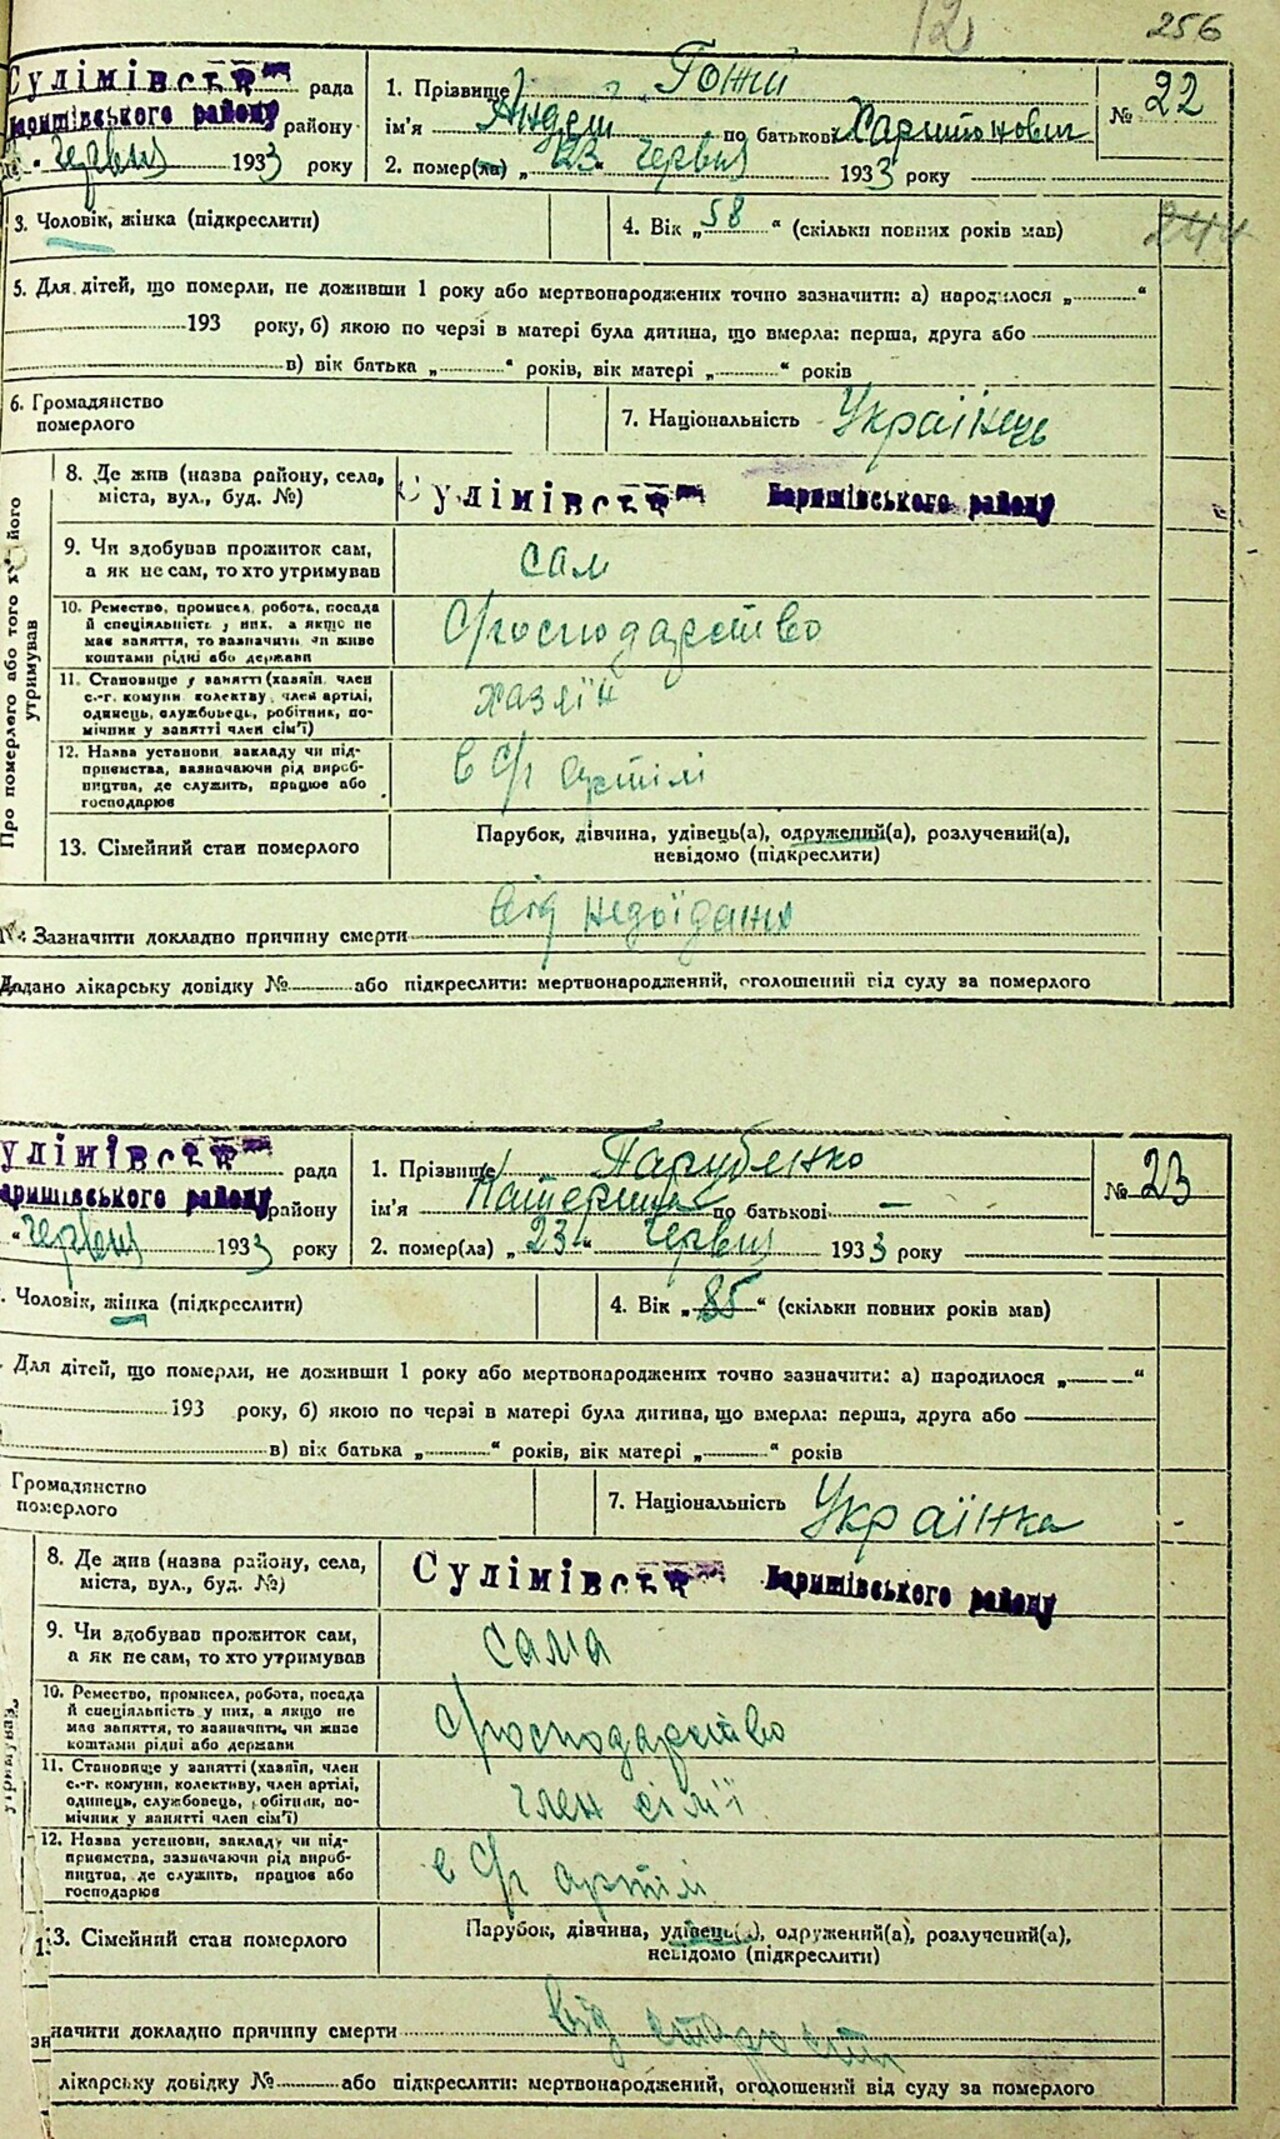 12 256
Сулімівськ рада
Баришівського району району
червня 1933 року
1. Прізвище Гожий
ім'я Андрій по батькові Харитонович
2. помер(ла) „23“ червня 1933 року
№ 22
3. Чоловік, жінка (підкреслити)
4. Вік „58“ (скільки повних років мав)
244
5. Для дітей, що померли, не доживши 1 року або мертвонароджених точно зазначити: а) народилося „ “
193 року, б) якою по черзі в матері була дитина, що вмерла: перша, друга або
в) вік батька „ “ років, вік матері „ “ років
6. Громадянство
померлого
7. Національність Українець
Про померлого або того хт його
утримував
8. Де жив (назва району, села,
міста, вул., буд. №)
Сулімівськ Баришівського району
9. Чи здобував прожиток сам,
а як не сам, то хто утримував
сам
10. Ремество, промисел, робота, посада
й спеціяльність у них, а якщо не
має заняття, то зазначити чи живе
коштами рідні або держави
С/господарство
11. Становище у занятті (хазяїн член
с.-г. комуни колективу, член артілі,
одинець, службовець, робітник, по-
мічник у занятті член сім'ї)
хазяїн
12. Назва установи закладу чи під-
приємства, зазначаючи рід вироб-
ництва, де служить, працює або
господарює
в С/г артілі
13. Сімейний стан померлого
Парубок, дівчина, удівець(а), одружений(а), розлучений(а),
невідомо (підкреслити)
Зазначити докладно причину смерти від недоїдання
Додано лікарську довідку № або підкреслити: мертвонароджений, оголошений від суду за померлого
улімівськ рада
аришівського району району
“ червня 1933 року
1. Прізвище Парубенко
ім'я Катерина по батькові —
2. помер(ла) „23“ червня 1933 року
№ 23
Чоловік, жінка (підкреслити)
4. Вік „85“ (скільки повних років мав)
Для дітей, що померли, не доживши 1 року або мертвонароджених точно зазначити: а) народилося „ “
193 року, б) якою по черзі в матері була дитина, що вмерла: перша, друга або
в) вік батька „ “ років, вік матері „ “ років
Громадянство
померлого
7. Національність Українка
утримував
8. Де жив (назва району, села,
міста, вул., буд. №)
Сулімівськ Баришівського району
9. Чи здобував прожиток сам,
а як не сам, то хто утримував
сама
10. Ремество, промисел, робота, посада
й спеціяльність у них, а якщо не
має заняття, то зазначити, чи живе
коштами рідні або держави
с/господарство
11. Становище у занятті (хазяїн, член
с.-г. комуни, колективу, член артілі,
одинець, службовець, робітник, по-
мічник у занятті член сім'ї)
член сім'ї
12. Назва установи, закладу чи під-
приємства, зазначаючи рід вироб-
ництва, де служить, працює або
господарює
в С/г артілі
13. Сімейний стан померлого
Парубок, дівчина, удівець(а), одружений(а), розлучений(а),
невідомо (підкреслити)
начити докладно причину смерти від старости
лікарську довідку № або підкреслити: мертвонароджений, оголошений від суду за померлого